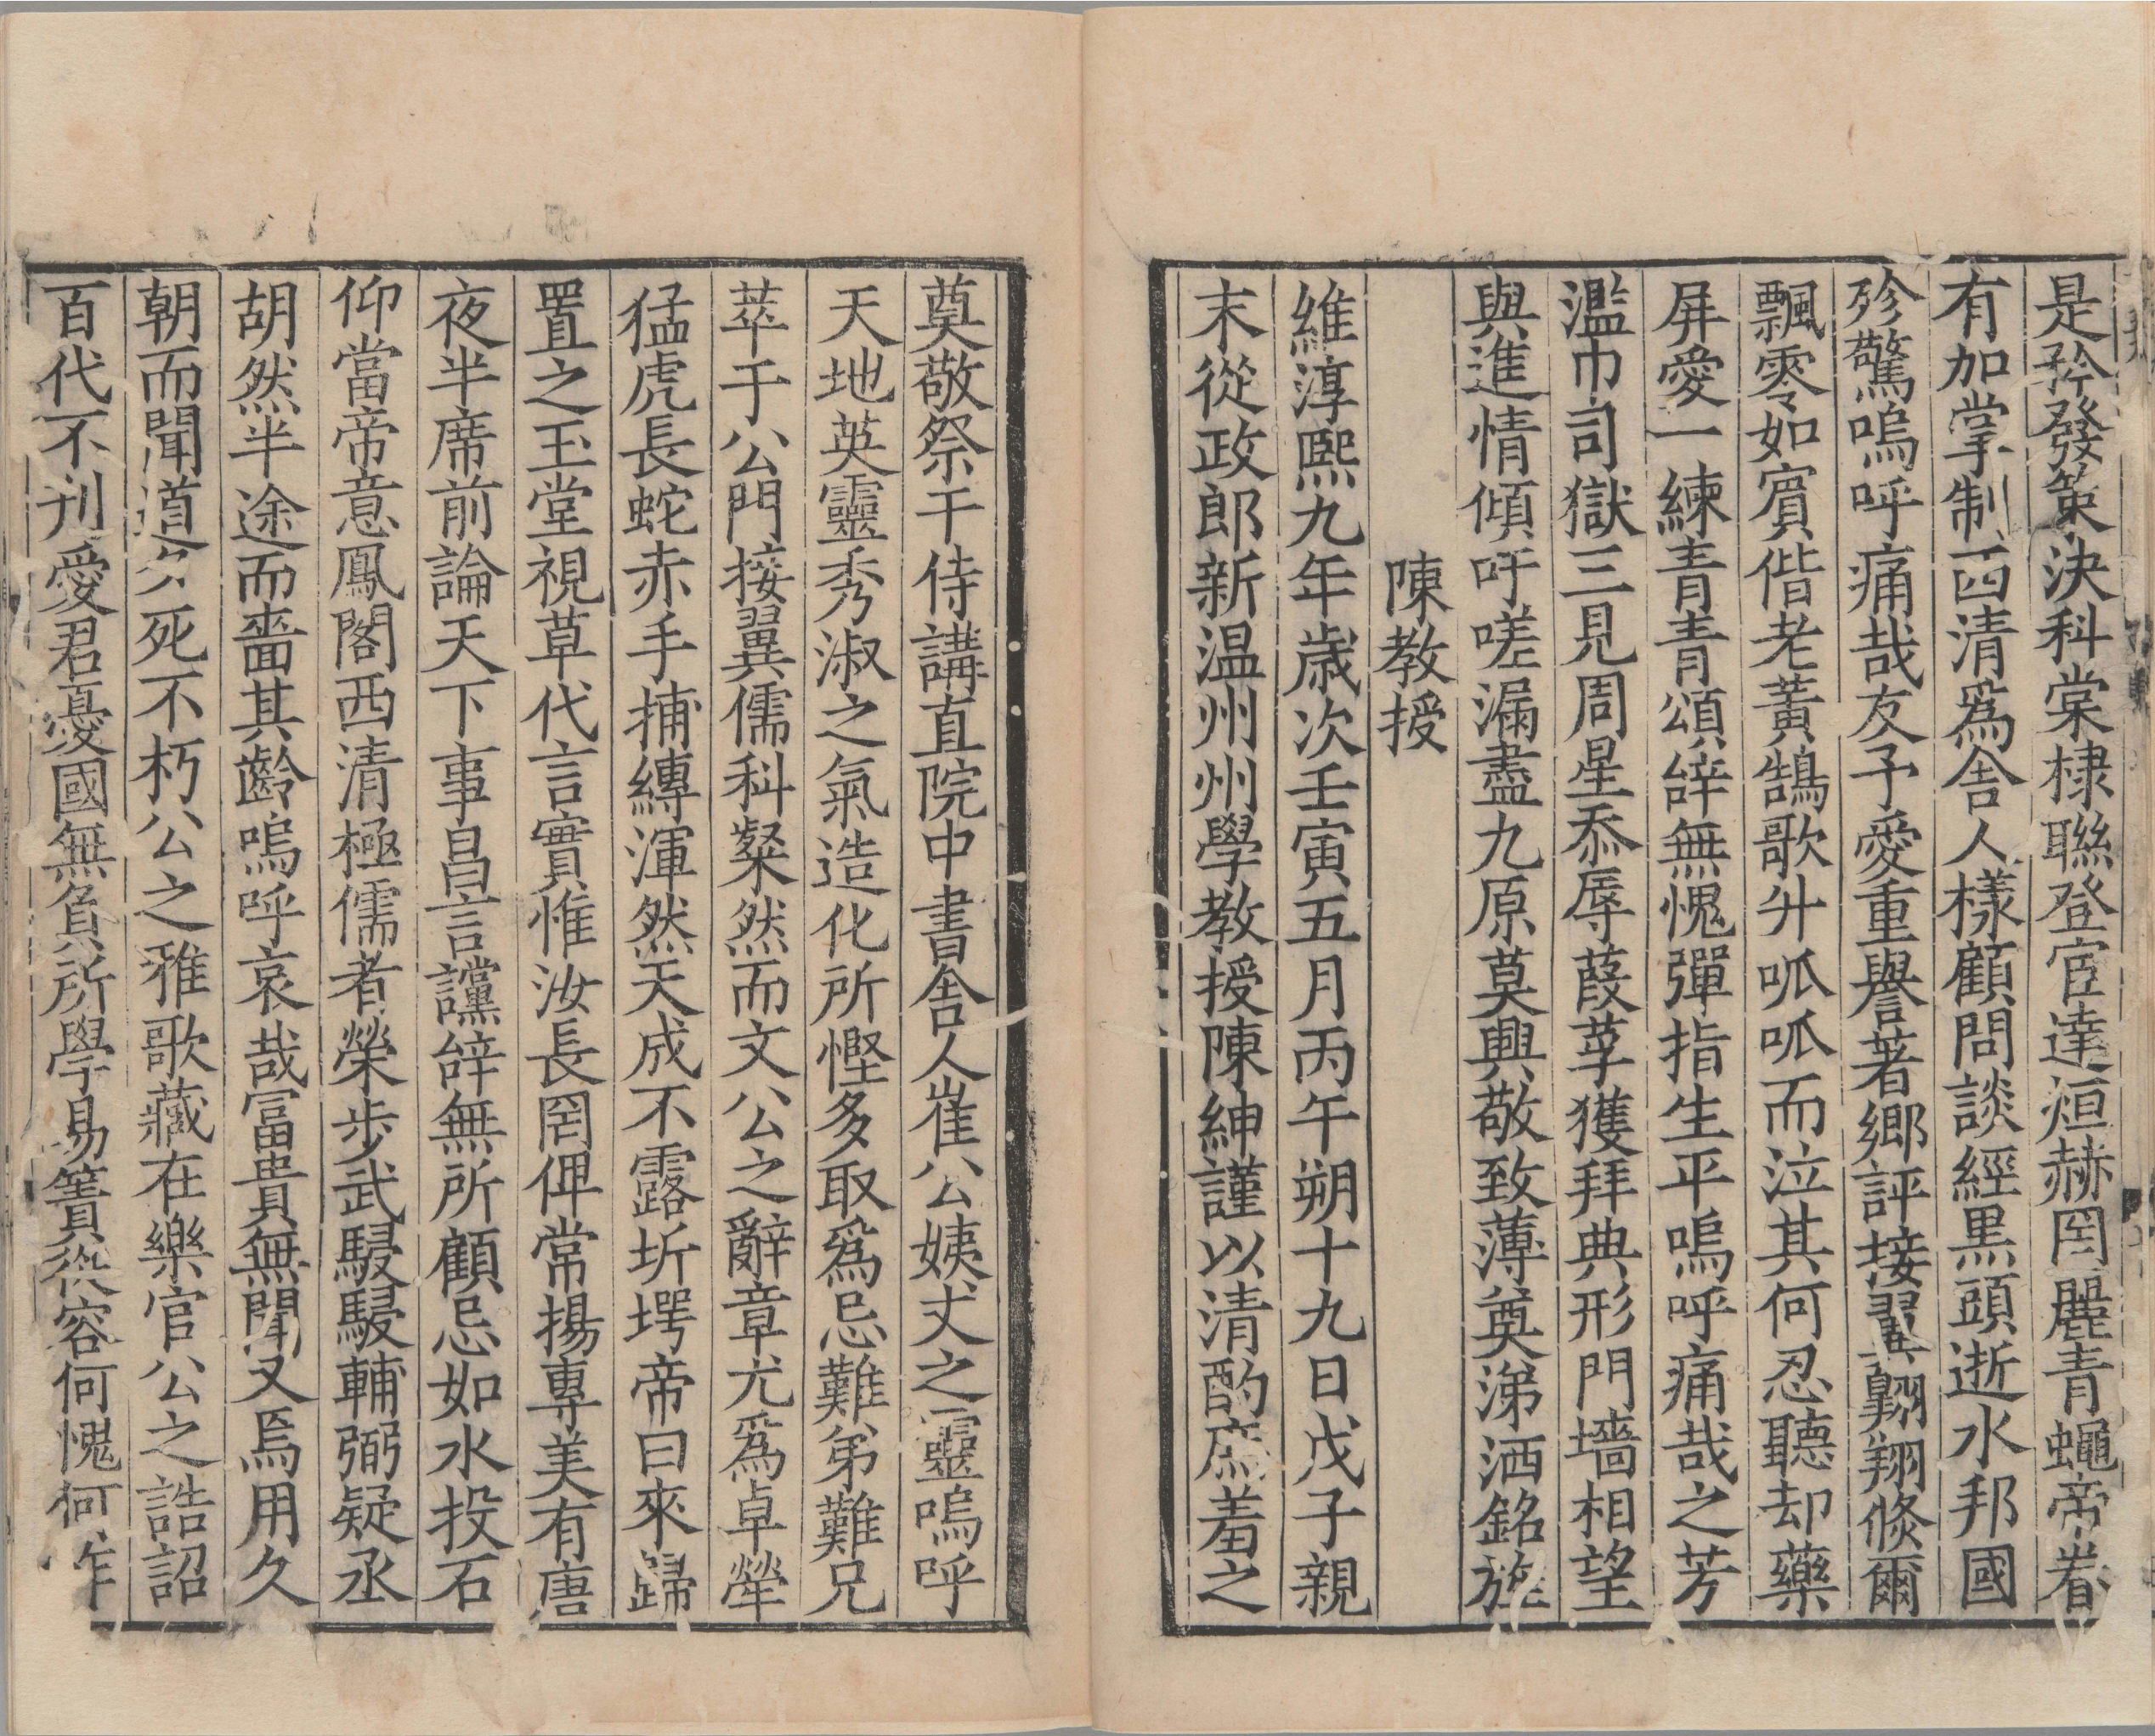 是矜發策決科棠棣聯登宦達烜赫罔麗青蠅帝眷
有加掌制西清爲舍人樣顧問談經黒頭逝水邦國
殄驚嗚呼痛哉友予愛重譽著鄉評接翼翺翔倐爾
飄零如賓偕老黃鵠歌升呱呱而泣其何忍聽却藥
屏愛一練青青頌辝無愧彈指生平嗚呼痛哉之芳
濫巾司獄三見周星忝辱葭莩獲拜典形門墻相望
與進情傾吁嗟漏盡九原莫興敬致薄奠涕洒銘旌
陳教授
維淳熙九年歳次壬寅五月丙午朔十九日戊子親
末從政郎新温州州學教授陳紳謹以清酌庶羞之
奠敬祭于侍講直院中書舍人崔公姨丈之靈嗚呼
天地英靈秀淑之氣造化所慳多取爲忌難弟難兄
萃于公門接翼儒科粲然而文公之辭章尤爲卓犖
猛虎長蛇赤手捕縳渾然天成不露圻堮帝曰來歸
置之玉堂視草代言實惟汝長罔俾常揚專美有唐
夜半席前論天下事昌言讜辝無所顧忌如水投石
仰當帝意鳳閣西清極儒者榮步武駸駸輔弼疑丞
胡然半途而嗇其齡嗚呼哀哉富貴無聞又焉用久
朝而聞道夕死不朽公之雅歌藏在樂官公之誥詔
百代不刋愛君憂國無負所學易簀從容何愧何怍